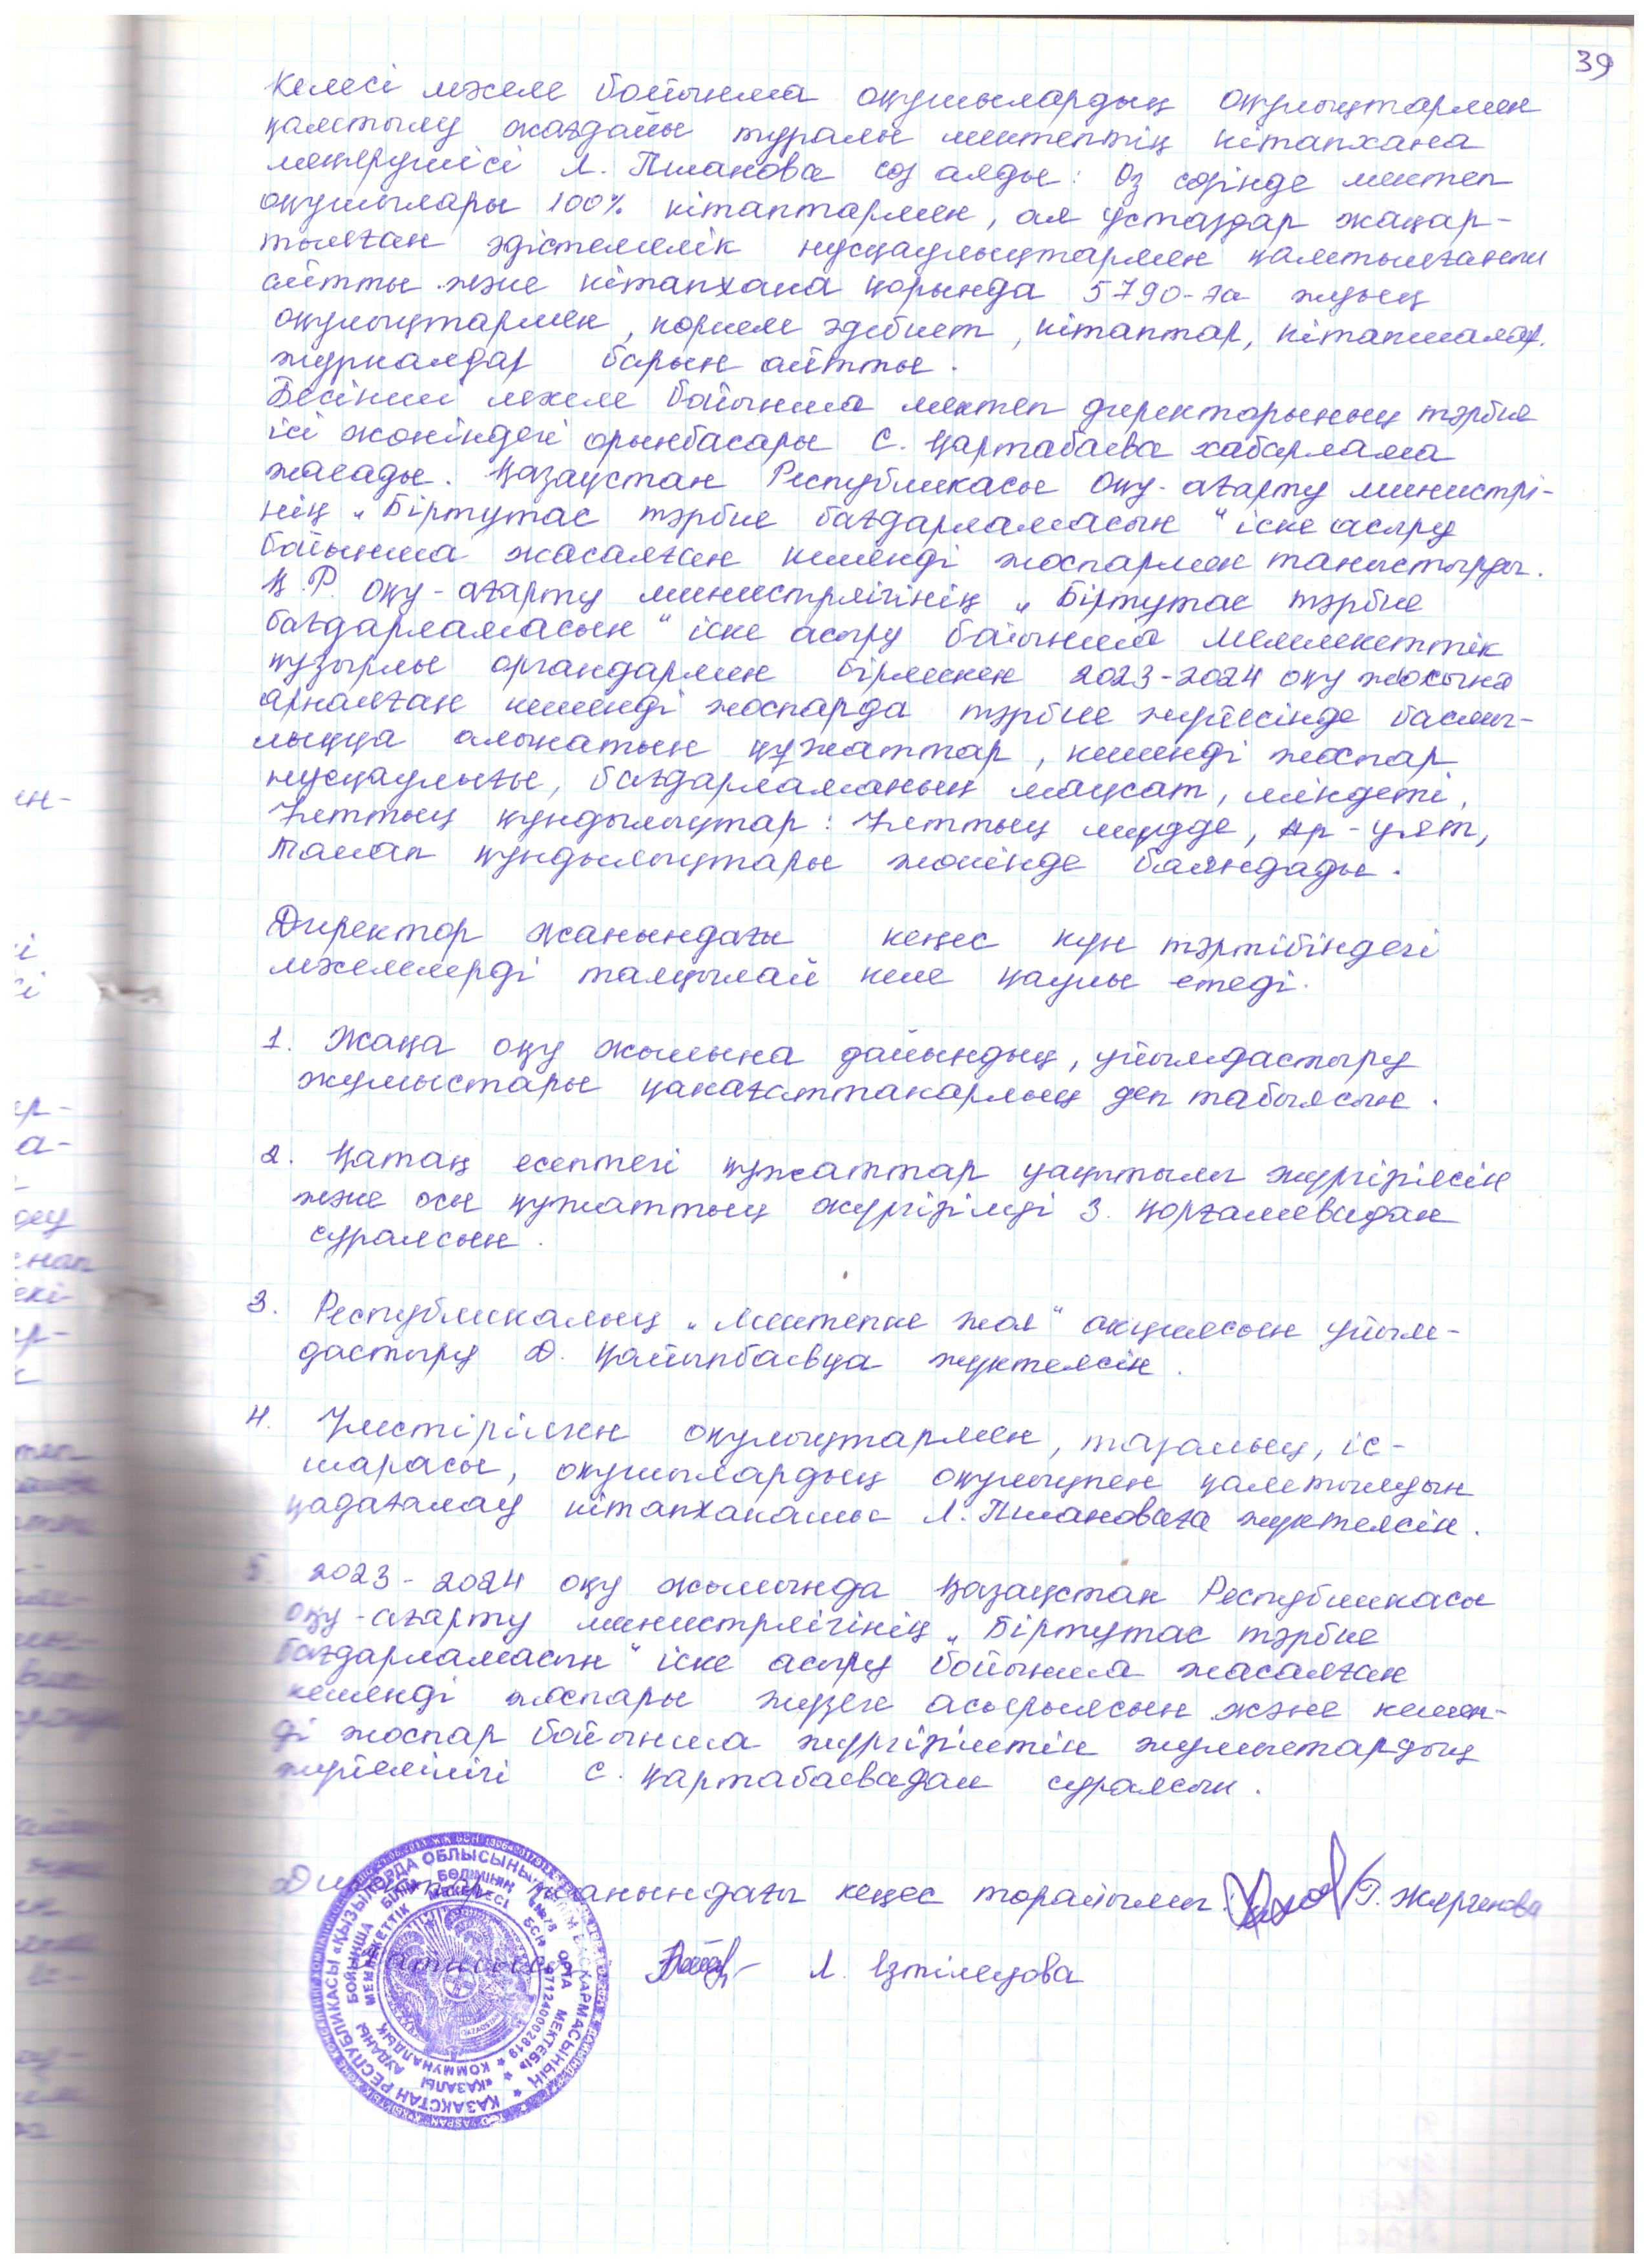 39
Келесі мәселе бойынша оқушылардың оқулықтармен
қамтылу жағдайы туралы мектептің кітапхана
меңгерушісі Л. Пшанова сөз алды: Өз сөзінде мектеп
оқушылары 100% кітаптармен, ал ұстаздар жаңар-
тылған әдістемелік нұсқаулықтармен қамтылғанын
айтты және кітапхана қорында 5790-ға жуық
оқулықтармен, көркем әдебиет, кітаптар, кітапшалар,
журналдар барын айтты.
Бесінші мәселе бойынша мектеп директорының тәрбие
ісі жөніндегі орынбасары С. Қартабаева хабарлама
жасады. Қазақстан Республикасы Оқу-ағарту министрі-
нің "Біртұтас тәрбие бағдарламасын" іске асыру
бойынша жасалған кешенді жоспармен таныстырды.
Қ.Р. Оқу-ағарту министрлігінің "Біртұтас тәрбие
бағдарламасын" іске асыру бойынша мемлекеттік
құзырлы органдармен бірлескен 2023-2024 оқу жылына
арналған кешенді жоспарда тәрбие жүйесінде басшы-
лыққа алынатын құжаттар, кешенді жоспар
нұсқаулығы, бағдарламаның мақсат, міндеті,
Ұлттық құндылықтар: Ұлттық мүдде, Ар-ұят,
Талап құндылықтары жөнінде баяндады.
Директор жанындағы кеңес күн тәртібіндегі
мәселелерді талқылай келе қаулы етеді.
1. Жаңа оқу жылына дайындық, ұйымдастыру
жұмыстары қанағаттанарлық деп табылсын.
2. Қатаң есептегі құжаттар уақытылы жүргізілсін
және осы құжаттың жүргізілуі З. Қорғамбевадан
сұралсын.
3. Республикалық "Мектепке жол" акциясын ұйым-
дастыру Д. Қайыпбаевқа жүктелсін.
4. Үлестірілген оқулықтармен, тазалық, іс-
шарасы, оқушылардың оқулықпен қамтылуын
қадағалау кітапханашы Л. Пшановаға жүктелсін.
5. 2023-2024 оқу жылында Қазақстан Республикасы
Оқу-ағарту министрлігінің "Біртұтас тәрбие
бағдарламасын" іске асыру бойынша жасалған
кешенді жоспары жүзеге асырылсын және кешен-
ді жоспар бойынша жүргізілетін жұмыстардың
жүйелілігі С. Қартабаевадан сұралсын.
Директор жанындағы кеңес төрайымы: Г. Жүргенова
Хатшысы Л. Ізтілеуова
ҚАЗАҚСТАН РЕСПУБЛИКАСЫ «ҚЫЗЫЛОРДА ОБЛЫСЫНЫҢ БІЛІМ БАСҚАРМАСЫНЫҢ
ҚАЗАЛЫ АУДАНЫ БОЙЫНША БІЛІМ БӨЛІМІНІҢ №78 ОРТА МЕКТЕБІ»
КОММУНАЛДЫҚ МЕМЛЕКЕТТІК МЕКЕМЕСІ БСН 971240002819